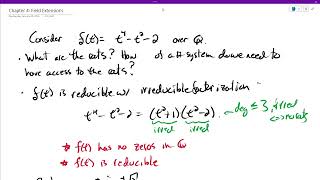 Chapter 4: Field Extensions
Consider f(t) = t⁴-t²-2 over Q.
• What are the roots? How of a # system do we need to
have access to the roots?
• f(t) is reducible w/ irreducible factorization
t⁴-t²-2 = (t²+1)(t²-2) ← deg ≤ 3, irred
irred irred ⇔ no roots
* f(t) has no zeros in Q
* f(t) is reducible